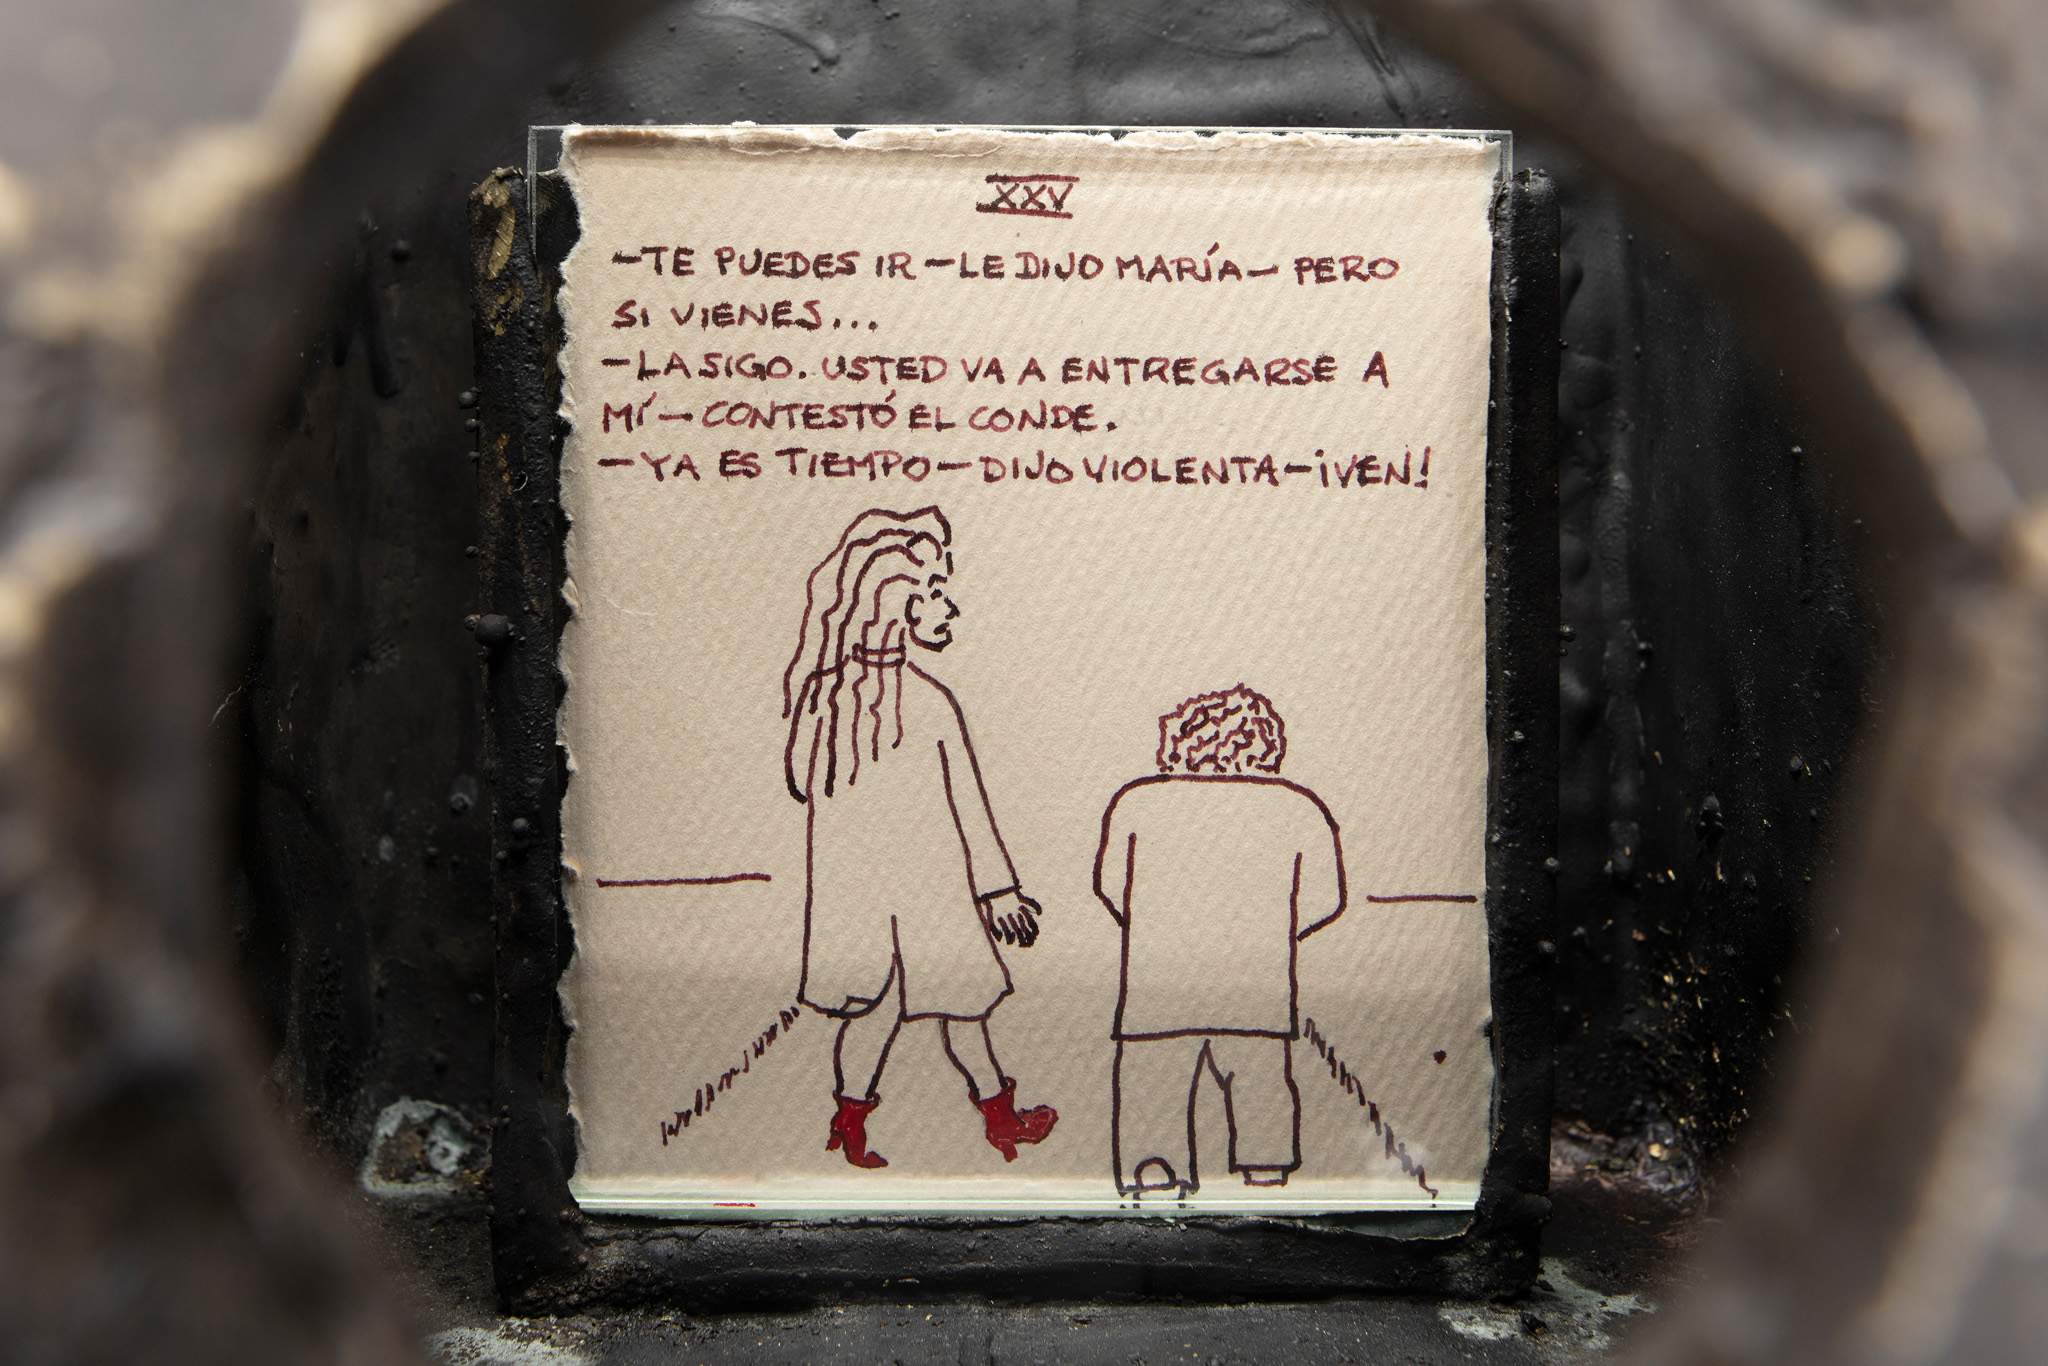 XXV
-TE PUEDES IR -LE DIJO MARÍA- PERO
SI VIENES...
-LA SIGO. USTED VA A ENTREGARSE A
MÍ- CONTESTÓ EL CONDE.
-YA ES TIEMPO- DIJO VIOLENTA- ¡VEN!